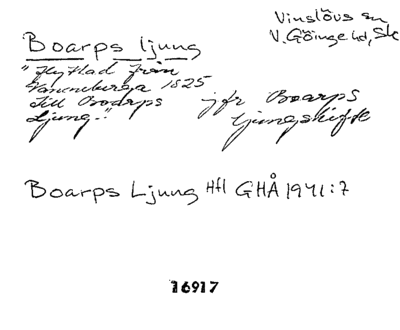 Vinslövs sn
V. Göinge hd, Sk
Boarps ljung
"Flyttad från
Vanneberga 1825
Till Boarps
Ljung."
jfr Boarps
ljungskifte
Boarps Ljung Hfl GHÅ 1941:7
16917